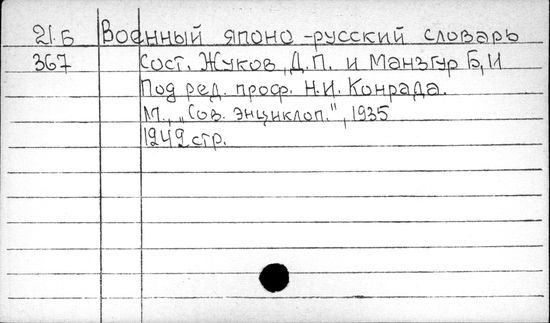 21.Б Военный японо-русский словарь
367 Сост. Жуков, Д.П. и Манзгур Б,И
Под ред. проф. Н.И. Конрада.
М., „Сов. энциклоп.", 1935
1242 стр.